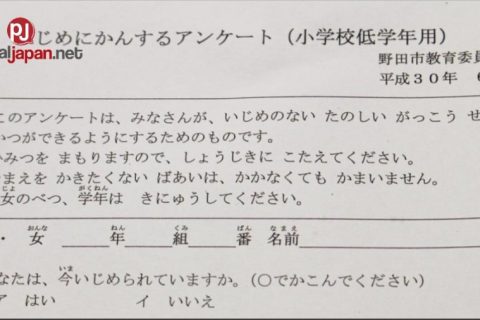 PJ
aljapan.net
じめにかんするアンケート（小学校低学年用）
野田市教育委員
平成３０年
このアンケートは、みなさんが、いじめのない たのしい がっこう せ
かつができるようにするためのものです。
みつを まもりますので、しょうじきに こたえてください。
まえを かきたくない ばあいは、かかなくても かまいません。
女のべつ、学年は きにゅうしてください。
・ 女 ＿＿＿年＿＿＿組＿＿＿番 名前＿＿＿＿＿＿
なたは、今いじめられていますか。（○でかこんでください）
ア はい イ いいえ